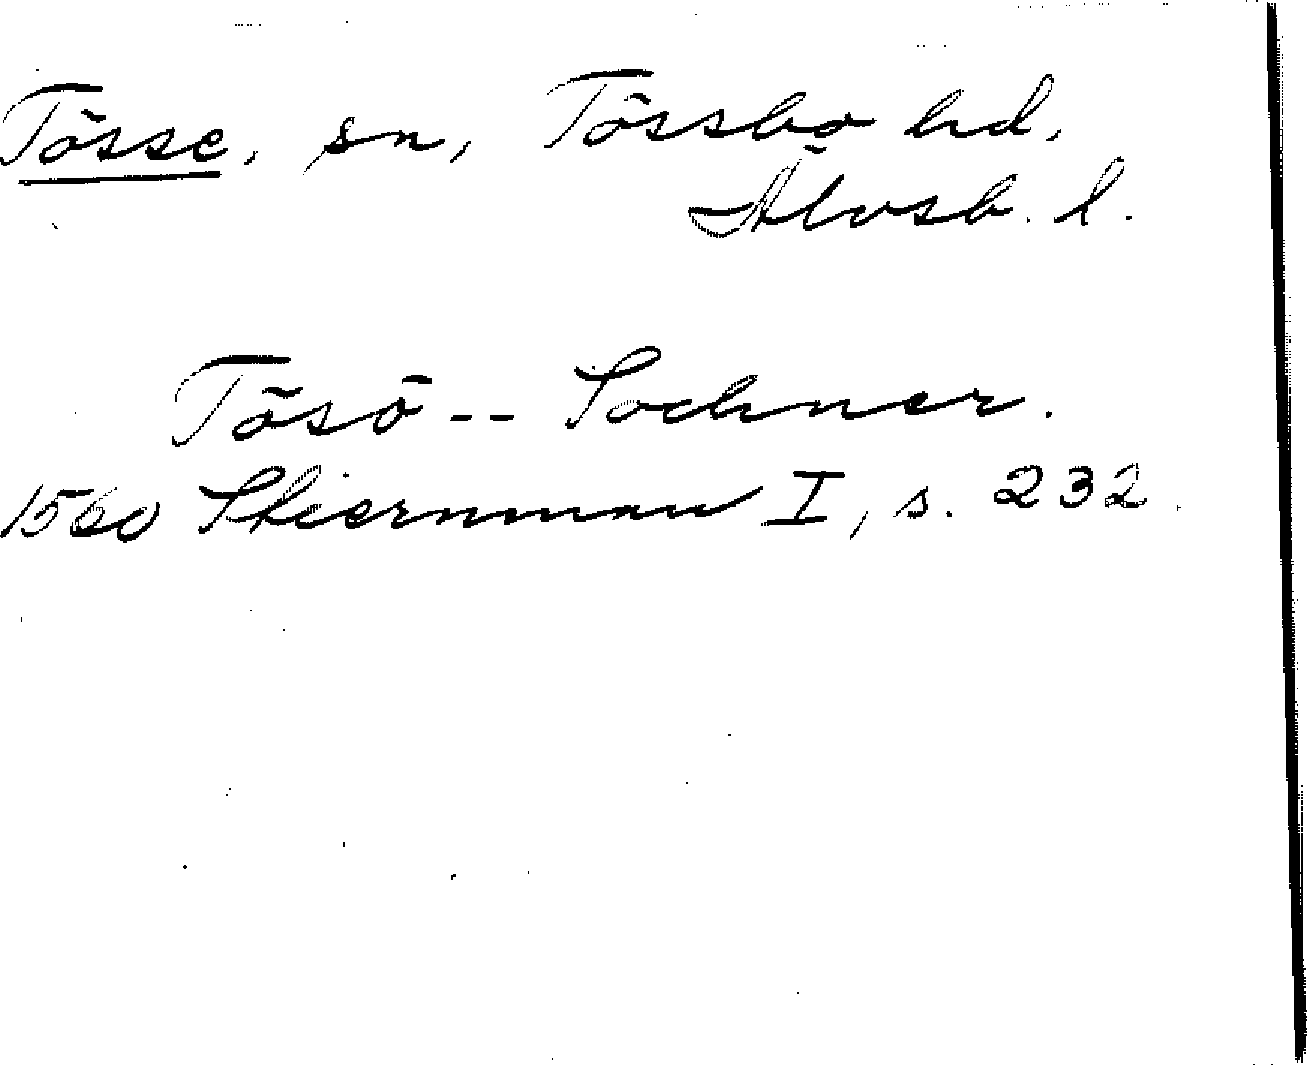 Tösse, sn, Tössbo hd,
Älvsb. l.
Tösö -- Sochner.
1560 Stiernman I, s. 232.